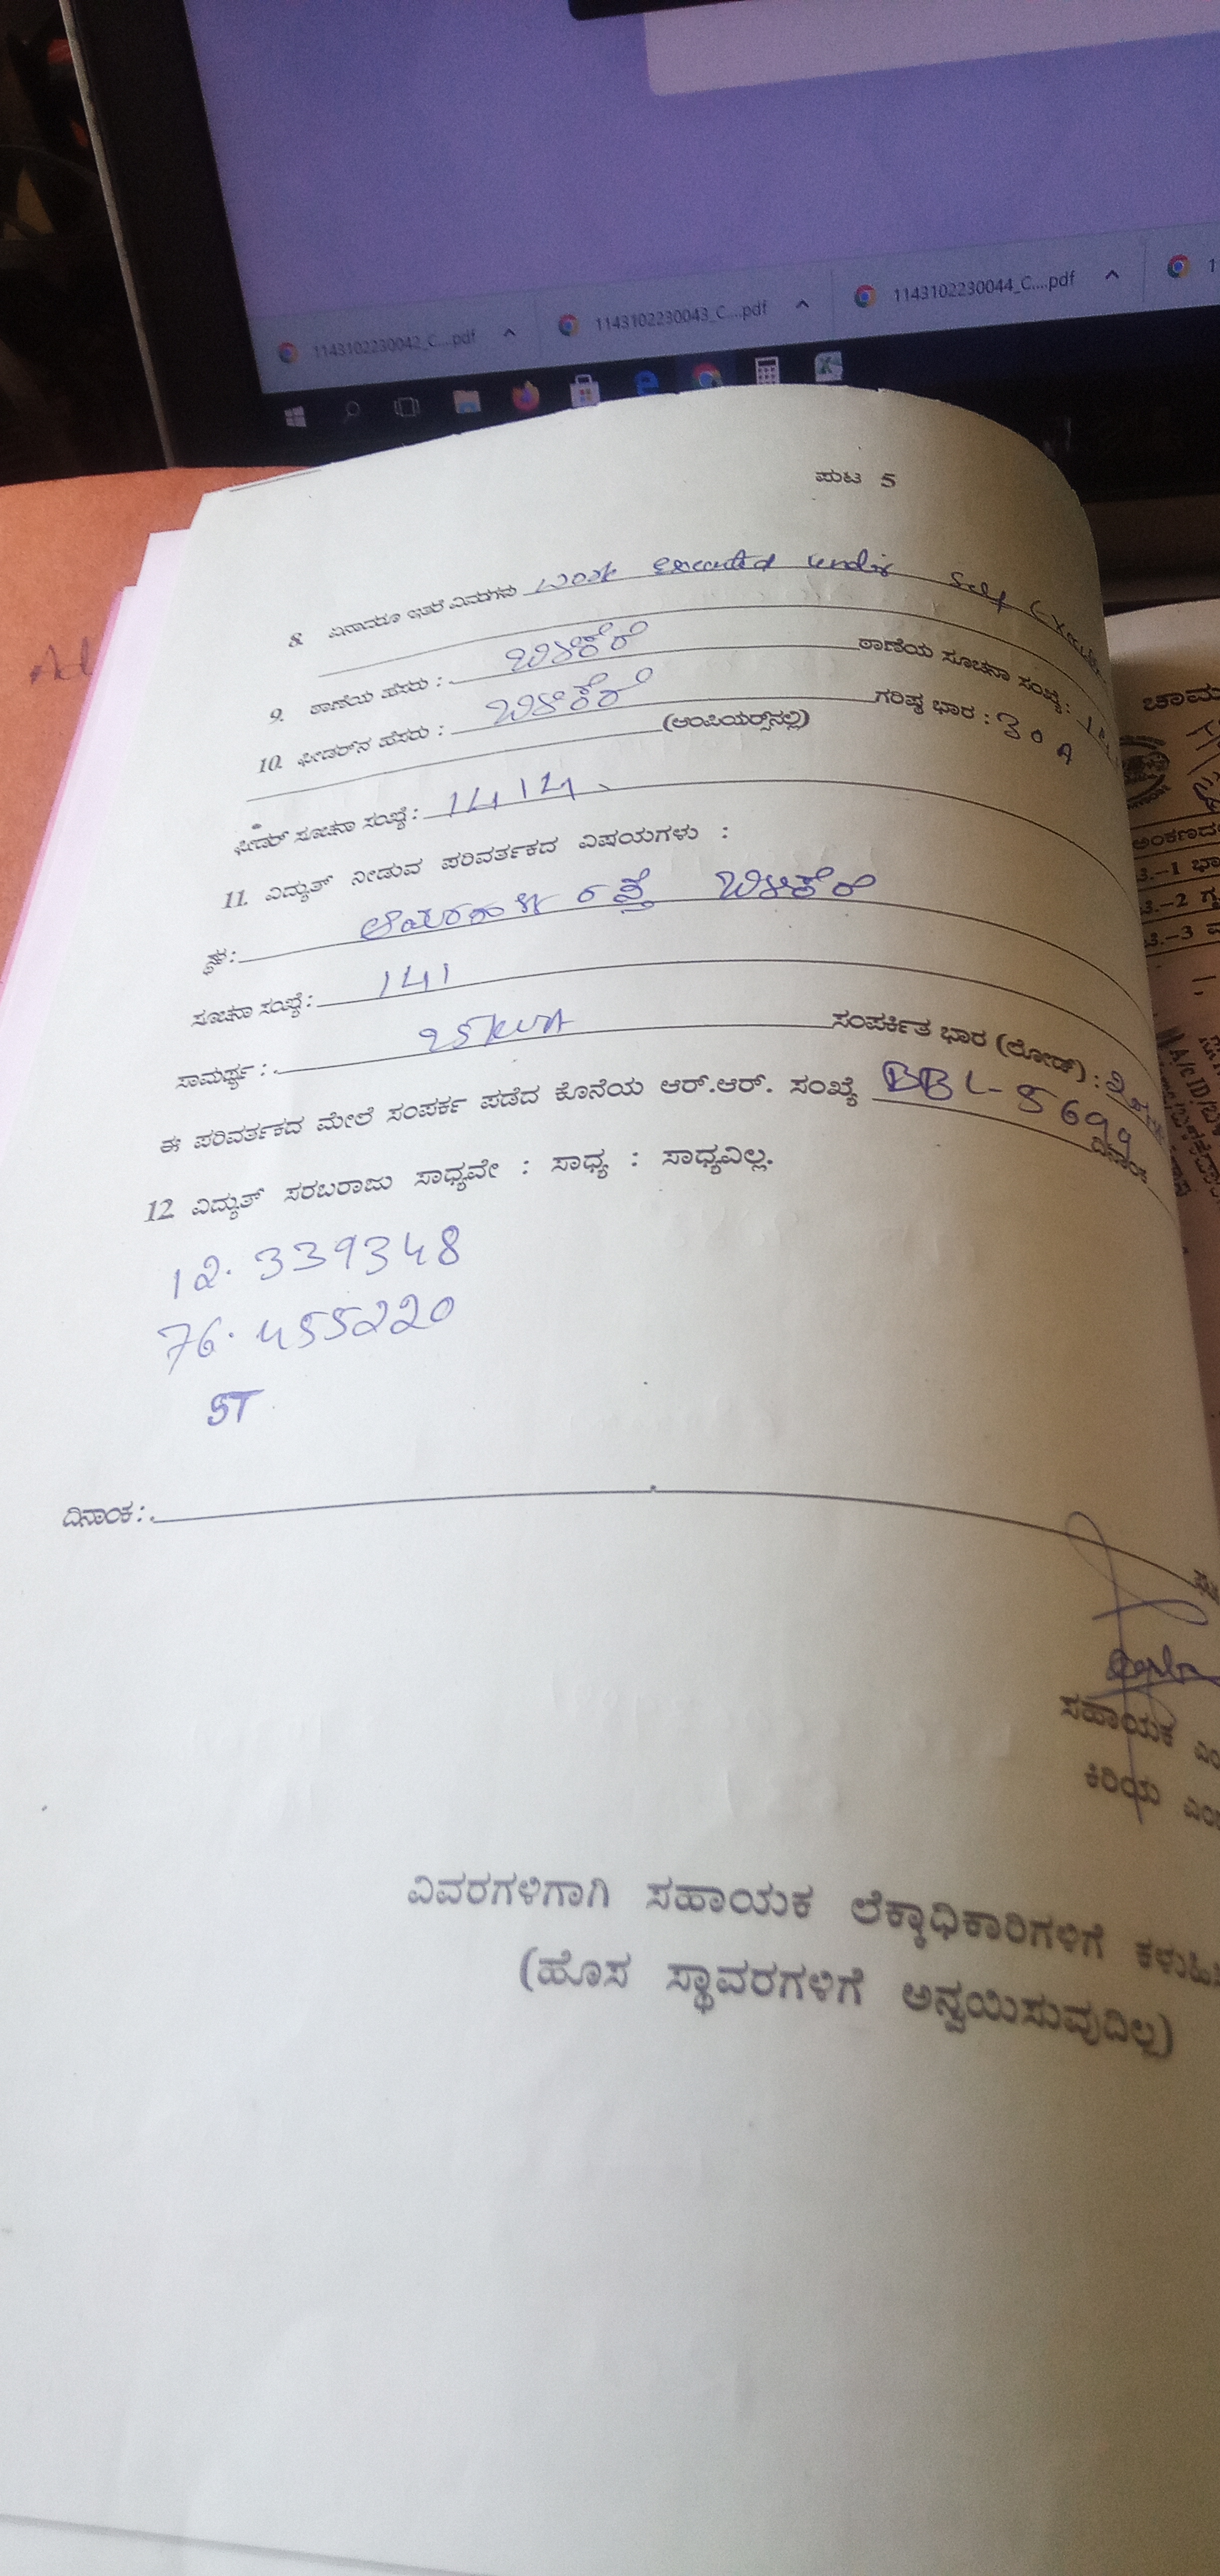 1143102230042_C....pdf
1143102230043_C....pdf
1143102230044_C....pdf
ಪುಟ 5
8. ಏನಾದರೂ ಇತರೆ ವಿವರಗಳು work executed under self
9. ಠಾಣೆಯ ಹೆಸರು : ಬಿಳಿಕೆರೆ ಠಾಣೆಯ ಸೂಚನಾ ಸಂಖ್ಯೆ :
10. ಫೀಡರ್‌ನ ಹೆಸರು : ಬಿಳಿಕೆರೆ ಗರಿಷ್ಠ ಭಾರ : 30 A
(ಆಂಪಿಯರ್‍ಸ್‌ನಲ್ಲಿ)
ಫೀಡರ್ ಸೂಚನಾ ಸಂಖ್ಯೆ : 1414
11. ವಿದ್ಯುತ್ ನೀಡುವ ಪರಿವರ್ತಕದ ವಿಷಯಗಳು :
ಸ್ಥಳ : ರಸ್ತೆ ಬಿಳಿಕೆರೆ
ಸೂಚನಾ ಸಂಖ್ಯೆ : 141
ಸಾಮರ್ಥ್ಯ : 25 kva ಸಂಪರ್ಕಿತ ಭಾರ (ಲೋಡ್) :
ಈ ಪರಿವರ್ತಕದ ಮೇಲೆ ಸಂಪರ್ಕ ಪಡೆದ ಕೊನೆಯ ಆರ್.ಆರ್. ಸಂಖ್ಯೆ BBL-5699
ದಿನಾಂಕ
12. ವಿದ್ಯುತ್ ಸರಬರಾಜು ಸಾಧ್ಯವೇ : ಸಾಧ್ಯ : ಸಾಧ್ಯವಿಲ್ಲ.
12.339348
76.455220
ST
ದಿನಾಂಕ :
ಸಹಾಯಕ
ಕಿರಿಯ
ವಿವರಗಳಿಗಾಗಿ ಸಹಾಯಕ ಲೆಕ್ಕಾಧಿಕಾರಿಗಳಿಗೆ
(ಹೊಸ ಸ್ಥಾವರಗಳಿಗೆ ಅನ್ವಯಿಸುವುದಿಲ್ಲ)